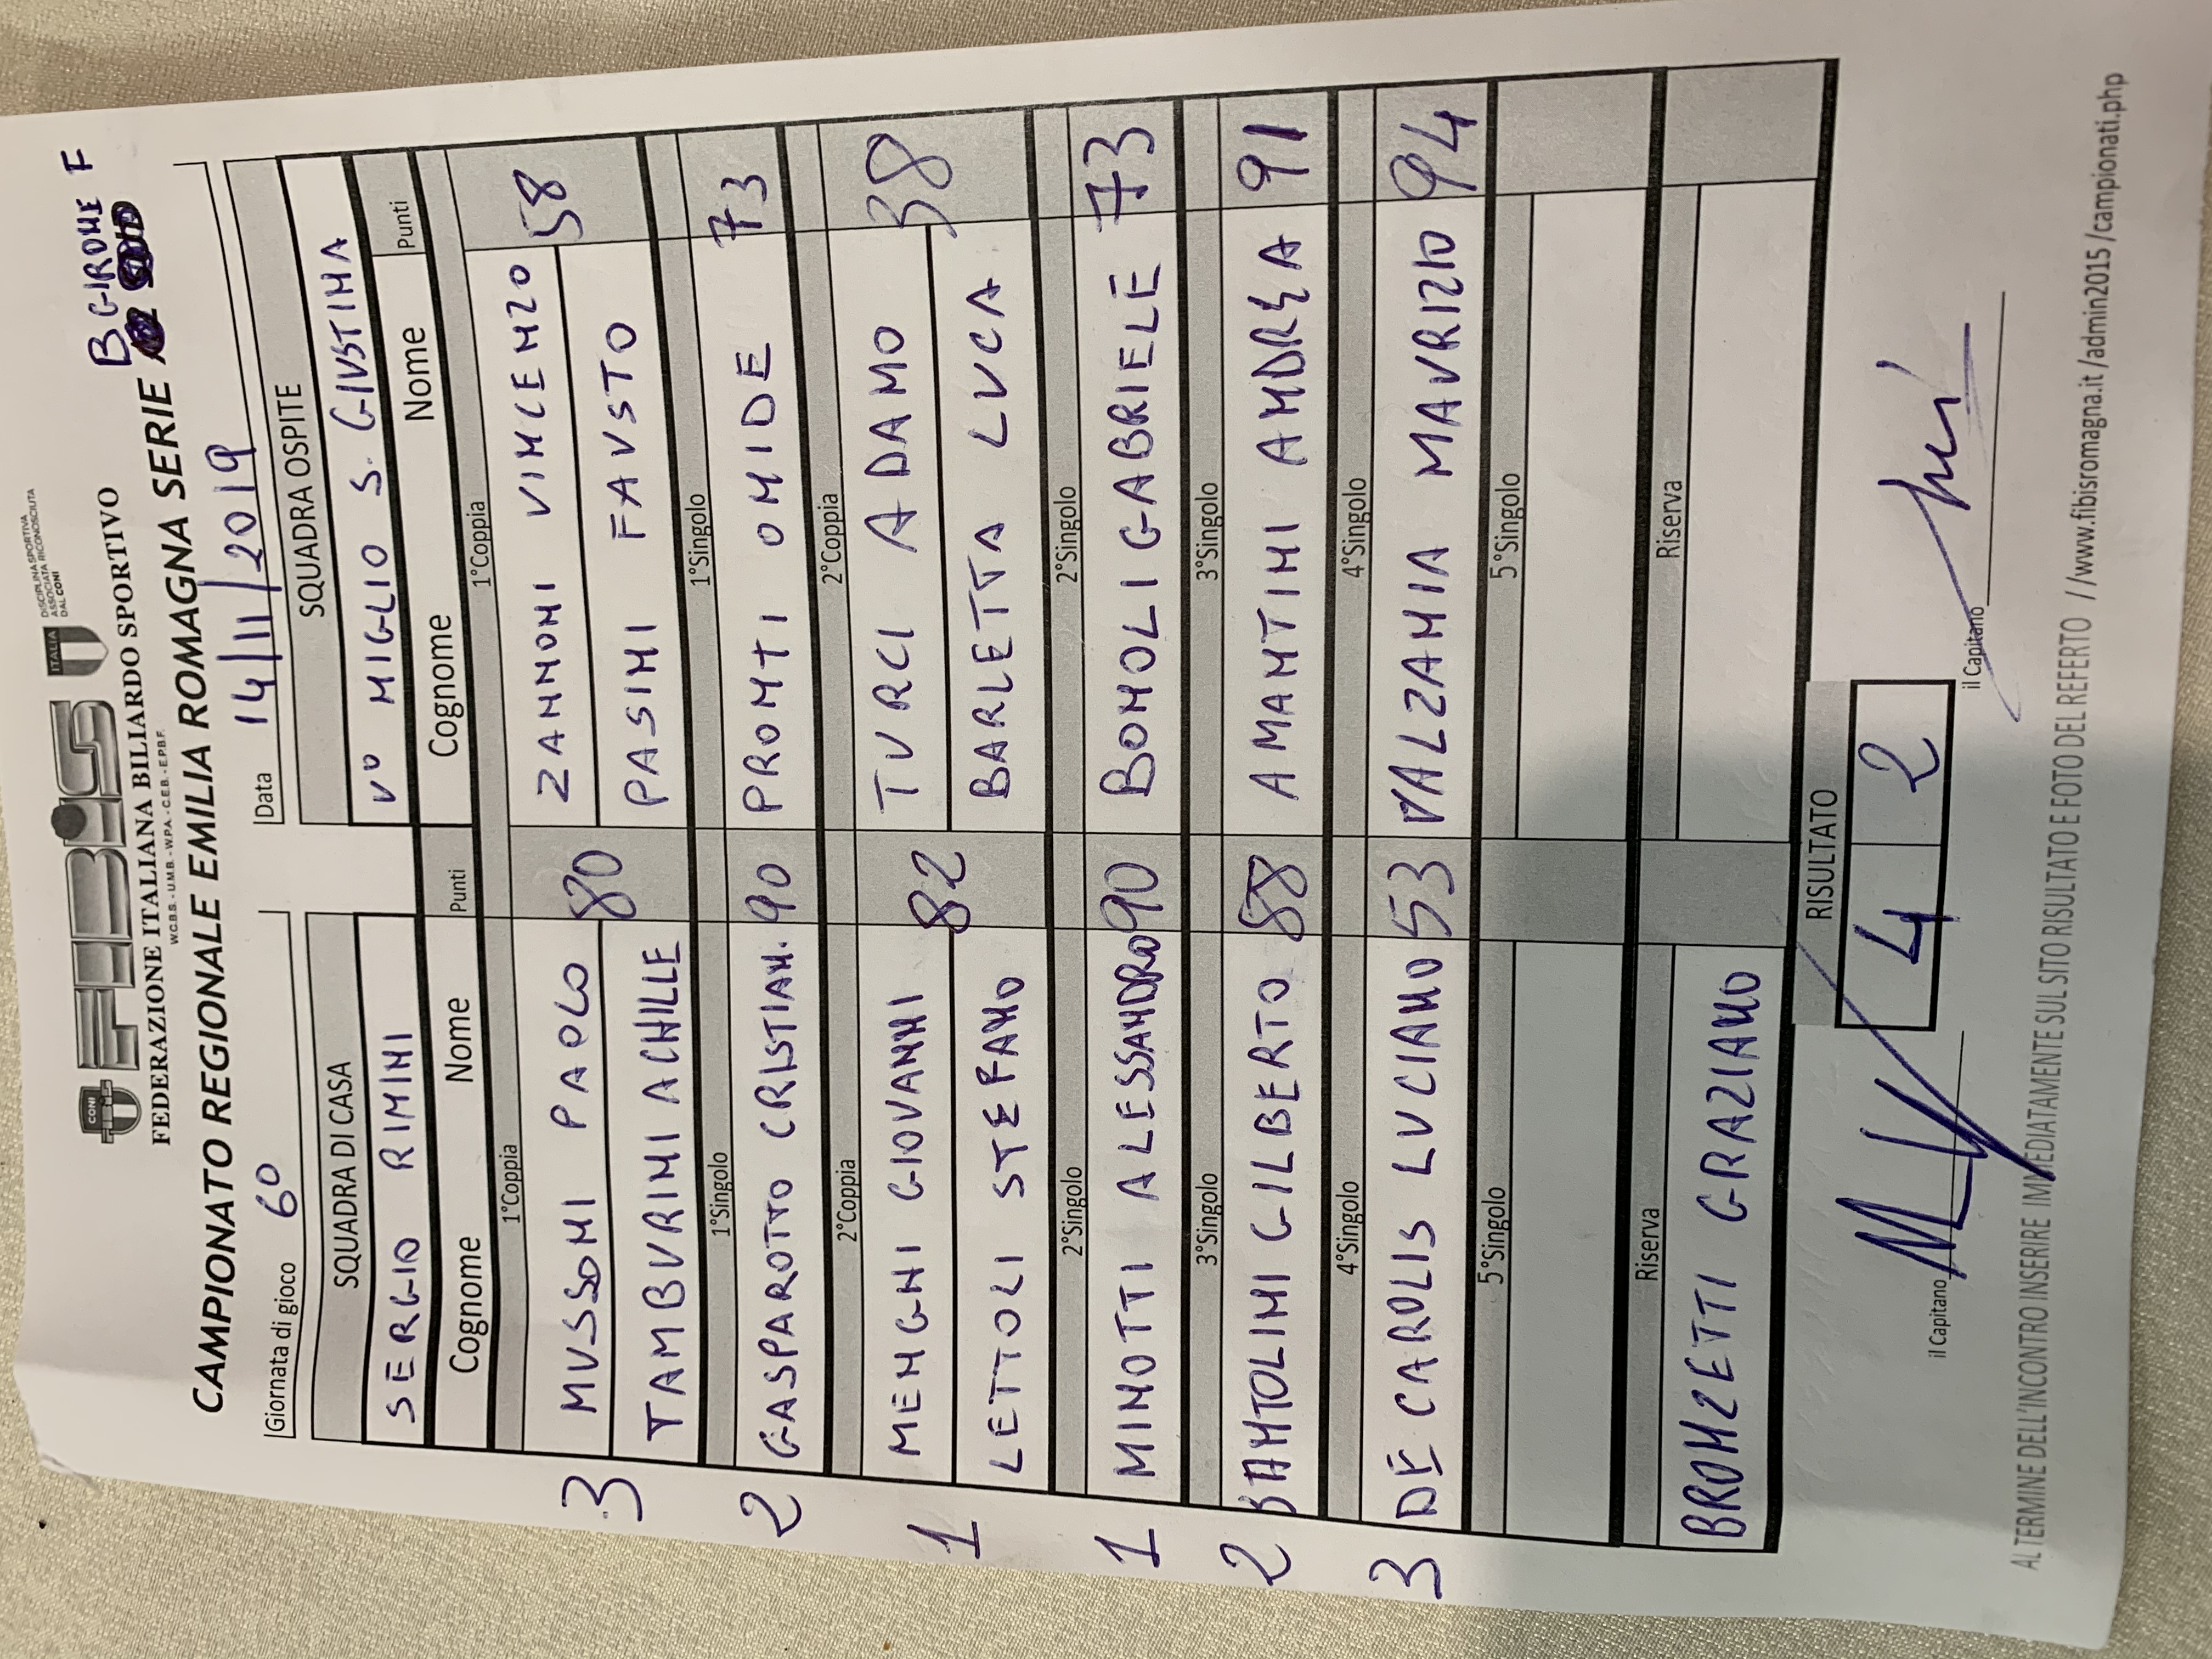 CONI
FEBIS
ITALIA
DISCIPLINA SPORTIVA
ASSOCIATA RICONOSCIUTA
DAL CONI
FEDERAZIONE ITALIANA BILIARDO SPORTIVO
W.C.B.S. - U.M.B. - W.P.A. - C.E.B. - E.P.B.F.
CAMPIONATO REGIONALE EMILIA ROMAGNA SERIE B GIRONE F
Giornata di gioco 6° Data 14/11/2019
SQUADRA DI CASA SQUADRA OSPITE
SERGIO RIMINI V° MIGLIO S. GIUSTINA
Cognome Nome Punti Cognome Nome Punti
1°Coppia 1°Coppia
3 MUSSONI PAOLO 80 ZANNONI VINCENZO 58
TAMBURINI ACHILLE PASINI FAUSTO
1°Singolo 1°Singolo
2 GASPAROTTO CRISTIAN. 90 PRONTI ONIDE 73
2°Coppia 2°Coppia
1 MENGHI GIOVANNI 82 TURCI ADAMO 38
LETTOLI STEFANO BARLETTA LUCA
2°Singolo 2°Singolo
1 MINOTTI ALESSANDRO 90 BONOLI GABRIELE 73
3°Singolo 3°Singolo
2 BANTOLINI GILBERTO 88 AMANTINI ANDREA 91
4°Singolo 4°Singolo
3 DE CAROLIS LUCIANO 53 VALZANIA MAURIZIO 94
5°Singolo 5°Singolo
Riserva Riserva
BRONZETTI GRAZIANO
RISULTATO
4 2
il Capitano il Capitano
AL TERMINE DELL'INCONTRO INSERIRE IMMEDIATAMENTE SUL SITO RISULTATO E FOTO DEL REFERTO //www.fibisromagna.it /admin2015 /campionati.php